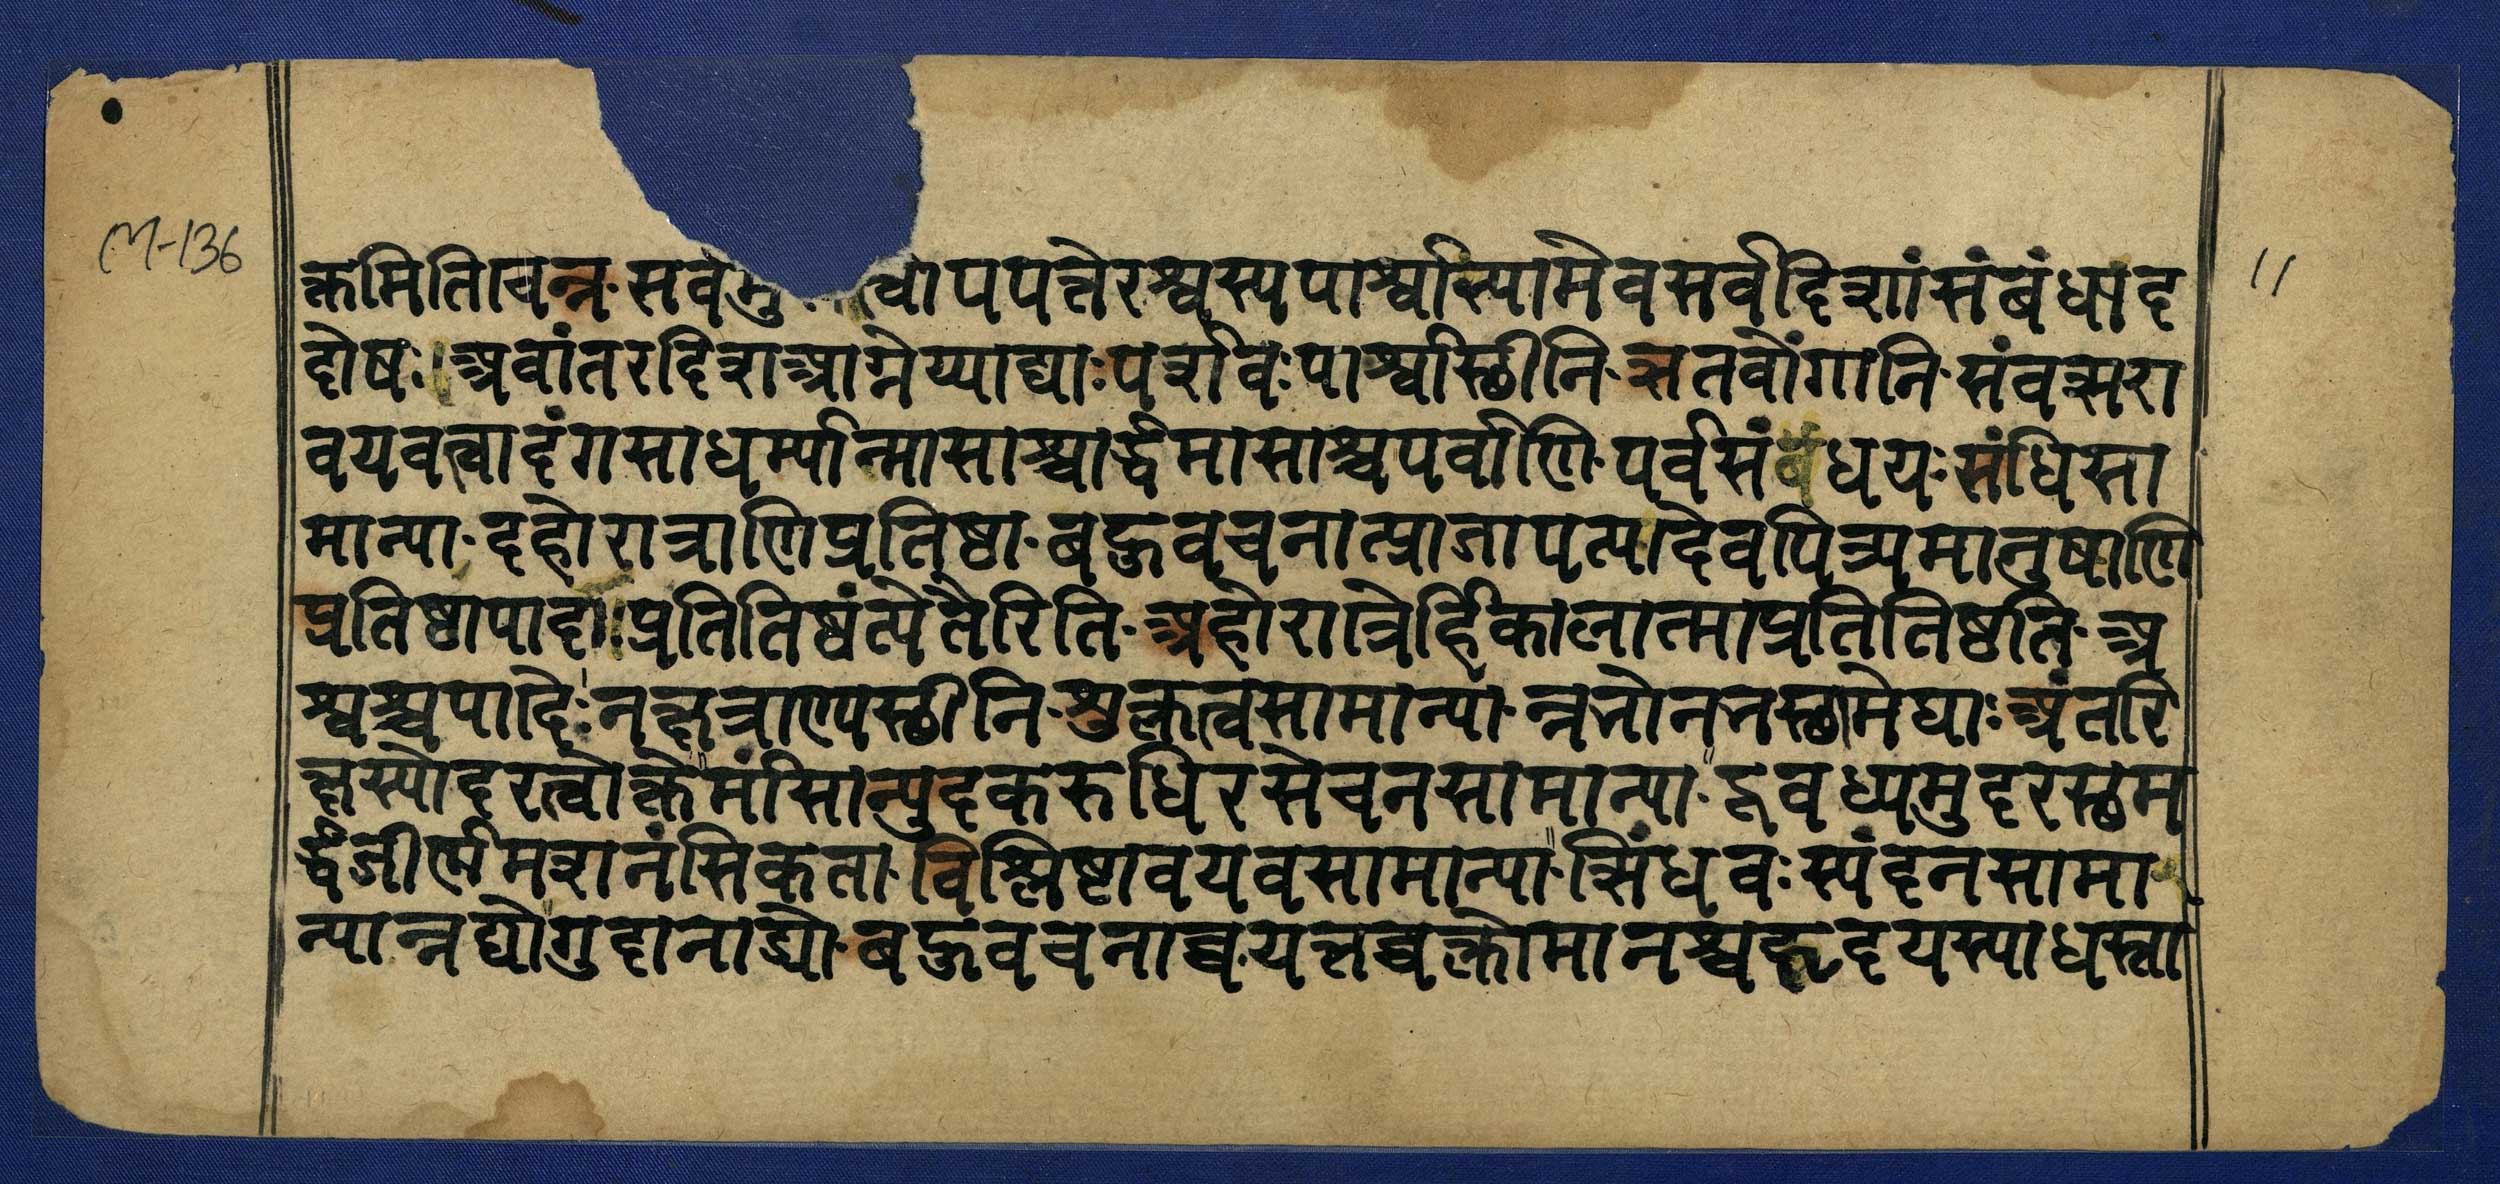 M-136
11
क्तमिति चेन्न सर्वमु त्वोपपत्तेरश्वस्य पार्श्वाभ्यामेव सर्वदिशां संबंधाद
दोषः । अवांतरदिश आग्नेय्याद्याः पर्शवः पार्श्वास्थीनि ऋतवोंगानि संवत्सरा
वयवत्वादंगसाधर्म्यान्मासाश्चार्द्धमासाश्च पर्वाणि पर्व संधयः संधिसा
मान्या दहोरात्राणि प्रतिष्ठा बहुवचनात्प्राजापत्यदैवपित्र्यमानुषाणि
प्रतिष्ठा पादाः प्रतितिष्ठंत्येतैरिति अहोरात्रैर्हि कालात्मा प्रतितिष्ठति अ
श्वश्च पादैः नक्षत्राण्यस्थीनि शुक्लत्वसामान्या न्नभो नभस्था मेघाः अंतरि
क्षस्योदरत्वोक्तेः मांसान्युदकरुधिरसेचनसामान्या दूवध्यमुदरस्थम
र्द्धजीर्णमशनं सिकता विश्लिष्टावयवसामान्या त्सिंधवः स्यंदनसामा
न्यान्नद्यो गुदा नाड्यो बहुवचनाच्च यकृच्च क्लोमानश्च हृदयस्याधस्ता